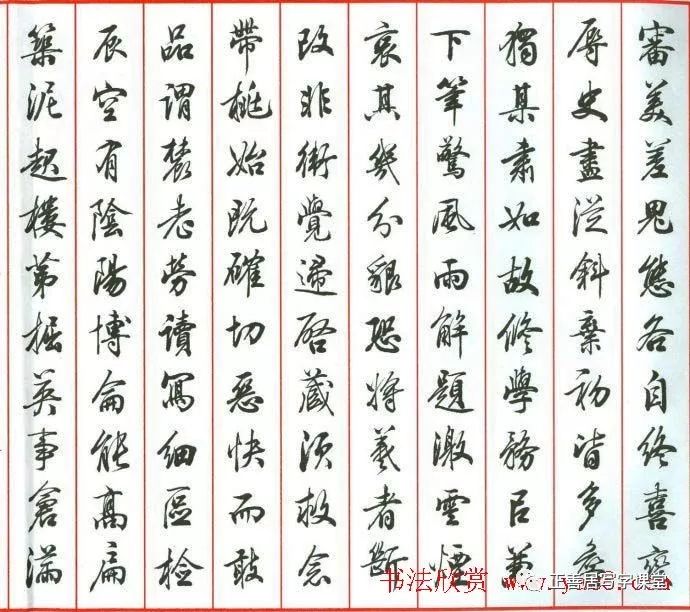 審美差異態各自終喜
辱史盡從斜棄初皆多
獨某肅如故修學務
下筆驚風雨解題激雲煙
哀其幾分艱恐將羲者斷
改非術覺啓藏須念
帶桃始既確切惡快而敢
品謂老勞讀寫細區檢
辰空有陰陽博侖能高扁
築泥起樓第掘英事倉滿
书法欣赏
正善居写字课堂